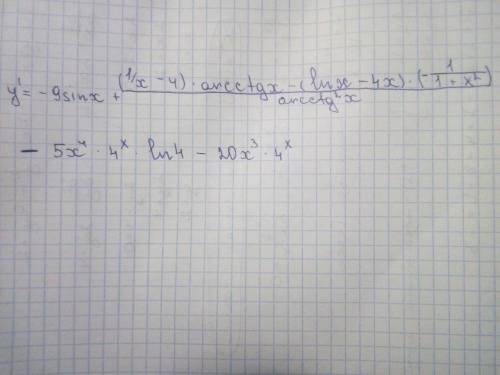 y' = -9sinx + ((1/x - 4) · arcctgx - (lnx - 4x) · (-1/(1 + x²)))/(arcctg²x)
- 5x⁴ · 4ˣ · ln4 - 20x³ · 4ˣ